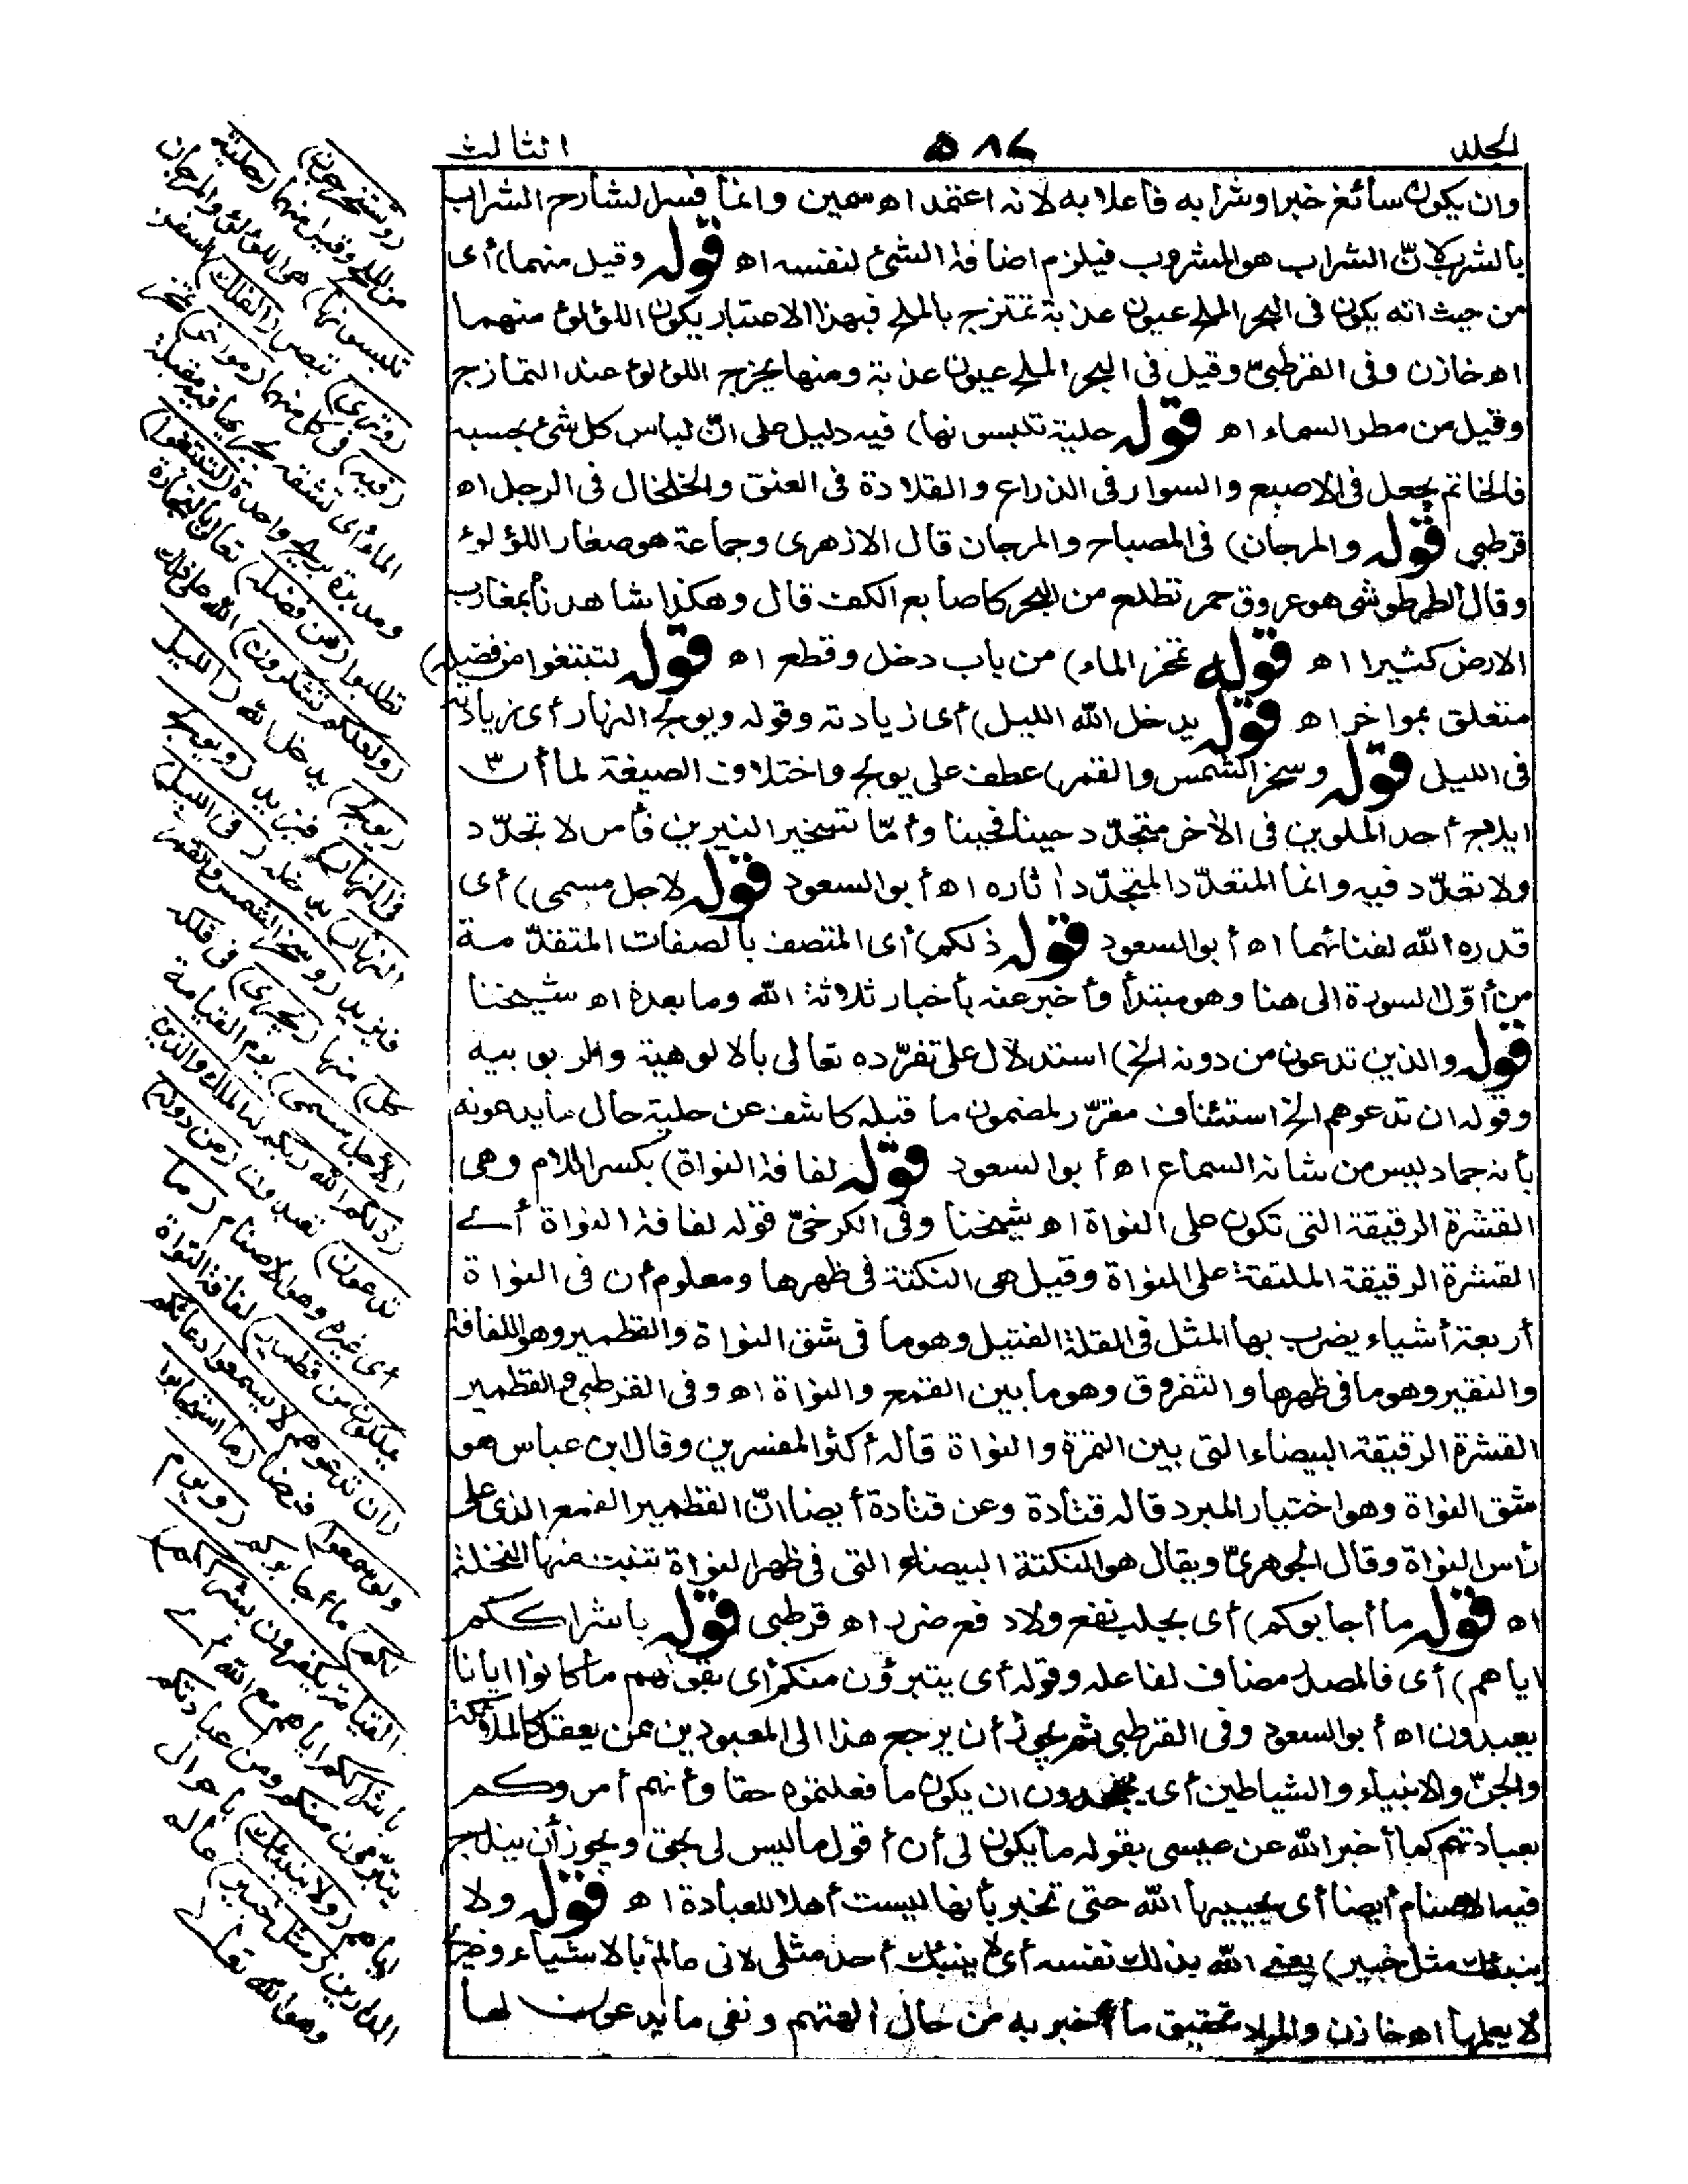 الجلد ٥٨٤ الثالث
وان يكون سائغ خبرا وشرابه فاعلا به لانه اعتمد اه سمين وانما فسر الشارح الشراب
بالشرب لانّ الشراب هو المشروب فيلزم اضافة الشئ لنفسه اه قوله وقيل منهما) أى
من حيث انه يكون فى البحر الملح عيون عذبة تمتزج بالملح فبهذا الاعتبار يكون اللؤلؤ منهما
اه خازن وفى القرطبىّ وقيل فى البحر الملح عيون عذبة ومنها يخرج اللؤلؤ عند التمازج
وقيل من مطر السماء اه قوله حلية تلبسونها) فيه دليل على انّ لباس كل شئ بحسبه
فالخاتم يجعل فى الاصبع والسوار فى الذراع والقلادة فى العنق والخلخال فى الرجل اه
قرطبى قوله والمرجان) فى المصباح والمرجان قال الازهرى وجماعة هو صغار اللؤلؤ
وقال الطرطوشى هو عروق حمر تطلع من البحر كاصابع الكف قال وهكذا شاهدناه بمغارب
الارض كثيرا اه قوله تمخر الماء) من باب دخل وقطع اه قوله لتبتغوا من فضله)
متعلق بمواخر اه قوله يدخل الله الليل) أى زيادته وقوله ويولج النهار أى زيادته
فى الليل قوله وسخر الشمس والقمر) عطف على يولج واختلاف الصيغة لما أنّ
ايلاج أحد الملوين فى الآخر متجدّد حينا فحينا وأمّا تسخير النيرين فأمر لا تجدّد
ولا تعدّد فيه وانما المتعدّد المتجدّد آثاره اه أبو السعود قوله لاجل مسمى) أى
قدره الله لفنائهما اه أبو السعود قوله ذلكم) أى المتصف بالصفات المتقدّمة
من أوّل السورة الى هنا وهو مبتدأ وأخبر عنه بأخبار ثلاثة الله وما بعده اه شيخنا
قوله والذين تدعون من دونه الخ) استدلال على تفرّده تعالى بالالوهية والربوبية
وقوله ان تدعوهم الخ استئناف مقرّر لمضمون ما قبله كاشف عن حلية حال ما يدعونه
بأنه جماد ليس من شانه السماع اه أبو السعود قوله لفافة النواة) بكسر اللام وهى
القشرة الرقيقة التى تكون على النواة اه شيخنا وفى الكرخىّ قوله لفافة النواة أى
القشرة الرقيقة الملتفة على النواة وقيل هى النكتة فى ظهرها ومعلوم أن فى النواة
أربعة أشياء يضرب بها المثل فى القلة الفتيل وهو ما فى شق النواة والقطمير وهو اللفافة
والنقير وهو ما فى ظهرها والثفروق وهو ما بين القمع والنواة اه وفى القرطبى والقطمير
القشرة الرقيقة البيضاء التى بين التمرة والنواة قاله أكثر المفسرين وقال ابن عباس هو
شق النواة وهو اختيار المبرد قاله قتادة وعن قتادة أيضا انّ القطمير القمع الذى على
رأس النواة وقال الجوهرىّ ويقال هو النكتة البيضاء التى فى ظهر النواة تنبت منها النخلة
اه قوله ما أجابوكم) أى بجلب نفع ولا دفع ضرر اه قرطبى قوله باشراككم
اياهم) أى فالمصدر مضاف لفاعله وقوله أى يتبرؤن منكم أى بقولهم ما كانوا ايانا
يعبدون اه أبو السعود وفى القرطبى ثم يجوز أن يرجع هذا الى المعبودين ممن يعقل كالملائكة
والجنّ والانبياء والشياطين أى يجحدون ان يكون ما فعلتموه حقا وأنهم أمروكم
بعبادتهم كما أخبر الله عن عيسى بقوله ما يكون لى أن أقول ما ليس لى بحق ويجوز أن يندرج
فيه الاصنام أيضا أى يحييها الله حتى تخبر بأنها ليست أهلا للعبادة اه قوله ولا
ينبئك مثل خبير) يعنى الله بذلك نفسه أى لا ينبئك أحد مثلى لانى عالم بالاشياء وغيرى
لا يعلمها اه خازن والمراد تحقيق ما أخبر به من حال آلهتهم ونفى ما يدعون لها
(وتستخرجون)
من الملح وقيل منهما (حلية
تلبسونها) هى اللؤلؤ والمرجان
(وترى) تبصر (الفلك) السفن
(فيه) فى كل منهما (مواخر) تمخر
الماء أى تشقه بجريها فيه مقبلة
ومدبرة بريح واحدة (لتبتغوا)
تطلبوا (من فضله) تعالى بالتجارة
(ولعلكم تشكرون) الله على ذلك
(يولج) يدخل الله (الليل
فى النهار) فيزيد (ويولج
النهار) يدخله (فى الليل)
فيزيد (وسخر الشمس والقمر
كل) منهما (يجرى) فى فلكه
(لاجل مسمى) يوم القيامة
(ذلكم الله ربكم له الملك والذين
تدعون) تعبدون (من دونه)
أى غيره وهو الاصنام (ما
يملكون من قطمير) لفافة النواة
(ان تدعوهم لا يسمعوا دعائكم
ولو سمعوا) فرضا (ما استجابوا
لكم) ما أجابوكم (ويوم
القيامة يكفرون بشرككم)
باشراككم اياهم مع الله أى
يتبرؤن منكم ومن عبادتكم
اياهم (ولا ينبئك) باحوال
الدارين (مثل خبير) عالم
وهو الله تعالى